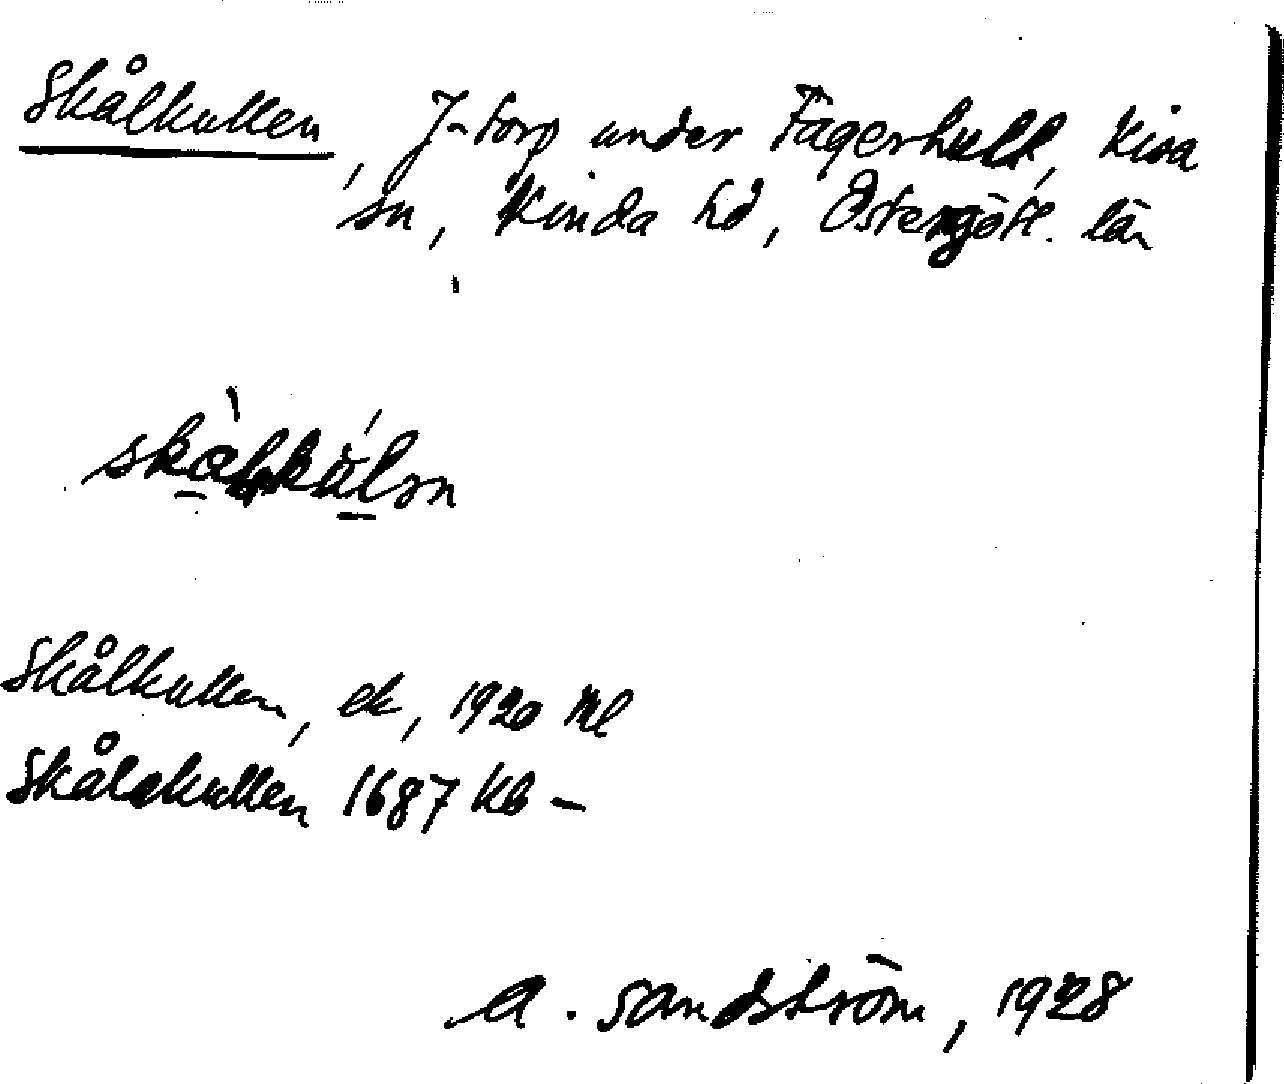 Skålkullen, J-torp under Fagerhult, Kisa
sn, Kinda hd, Östergötl. län
Skålkullen, ek, 1920 Kl
Skålakullen 1687 Kb –
A. Sandström, 1928